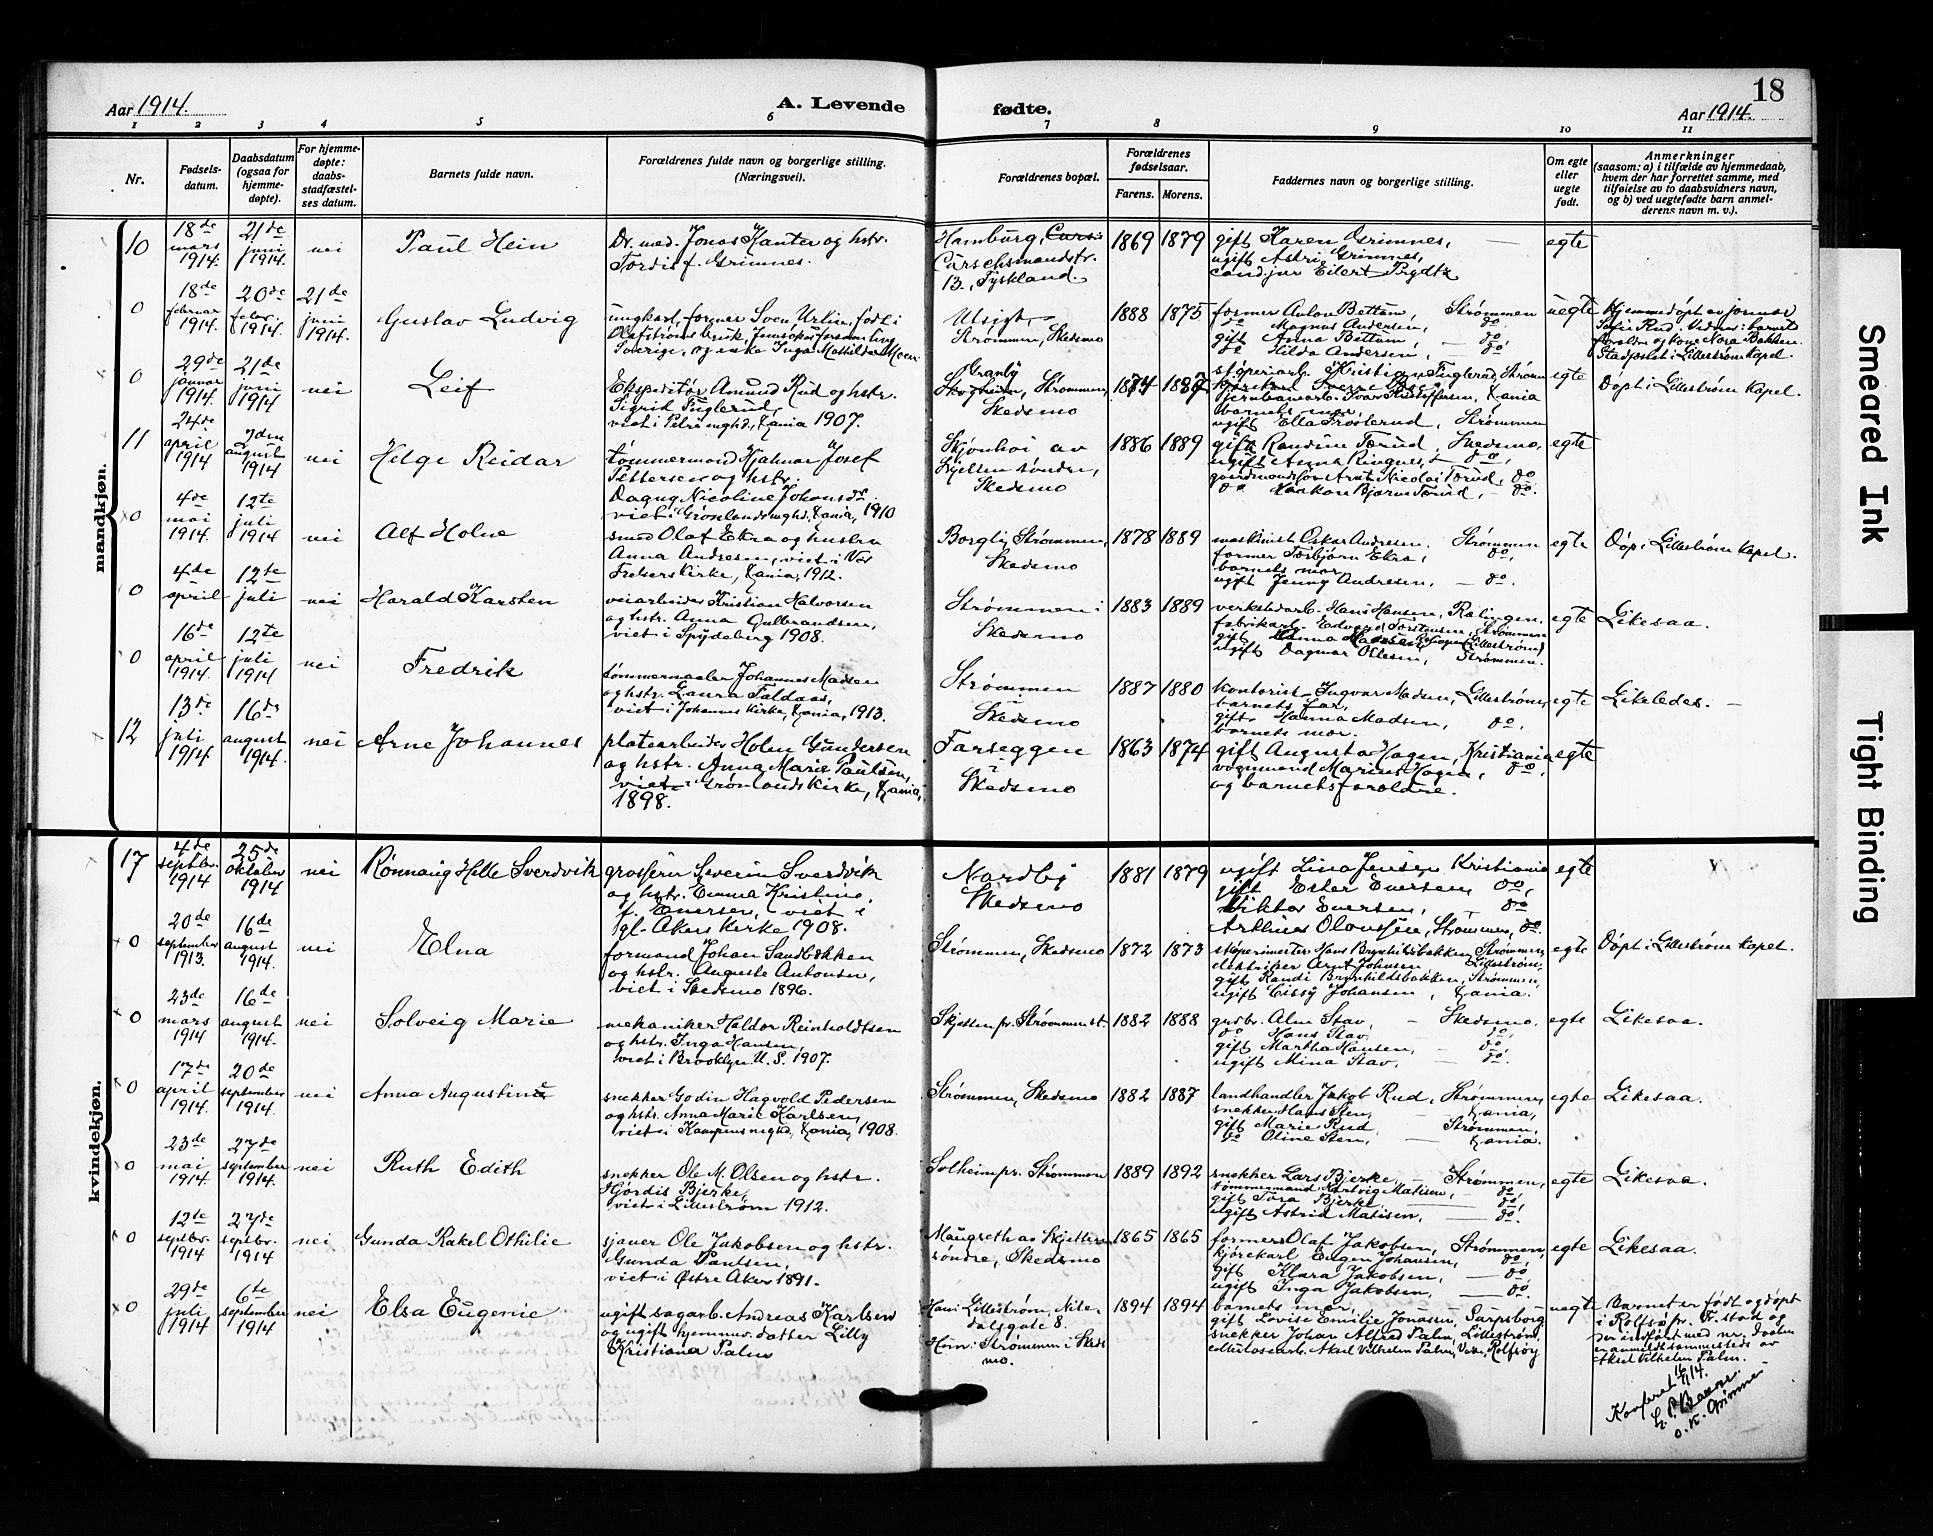 18
Aar 1914.
A. Levende fødte.
Aar 1914.
1 2 3 4 5 6 7 8 9 10 11
Nr.
Fødsels-
datum.
Daabsdatum
(ogsaa for
hjemme-
døpte).
For hjemme-
døpte:
daabs-
stadfæstel-
ses datum.
Barnets fulde navn.
Forældrenes fulde navn og borgerlige stilling.
(Næringsvei).
Forældrenes bopæl.
Forældrenes
fødselsaar.
Farens. Morens.
Faddernes navn og borgerlige stilling.
Om egte
eller
uegte
født.
Anmerkninger
(saasom: a) i tilfælde av hjemmedaab,
hvem der har forrettet samme, med
tilføielse av to daabsvidners navn,
og b) ved uegtefødte barn anmel-
derens navn m. v.).
mandkjøn.
10
18de
mars
1914.
21de
juni
1914.
nei
Paul Hein
Dr. med. Jonas Kanter og hstr.
Tordis f. Grimnes.
Hamburg,
Curschmandstr.
13., Tyskland.
1869 1879
gift Karen Grimnes,
ugift Astri Grimnes,
cand. jur Eilert
egte
0
18de
februar
1914.
20de
febr.
1914.
21de
juni
1914.
Gustav Ludvig
ungkarl, former Sven
Sverige, og enke Inga Mathilde Moen
Utsigt,
Strømmen, Skedsmo
1888 1875
former Anton Bettum, Strømmen
do Magnus Andersen, do.
gift Anna Bettum, do.
do Hilda Andersen, do.
uegte
Hjemmedøpt av jormor
Sofie Rud. Vidner: barnets
forældre og kone Nora Bakken.
Stadfæstet i Lillestrøm Kapel.
0
29de
januar
1914.
21de
juni
1914
nei
Leif
Ekspeditør Amund Rud og hstr.
Sigrid Fuglerud,
viet i Petri mghd., Kania 1907.
Granly
Strømmen,
Skedsmo
1874 1887
støperiarb. Kristian Fuglerud, Strømm
jernbanearb. Ivar Kristoffersen, Kania
barnets mor,
ugift Ella Frosterud, Strømmen
egte
Døpt i Lillestrøm Kapel.
11
24de
april
1914
2den
august
1914
nei
Helge Reidar
tømmermand Hjalmar Josef
Pettersen og hstr.
Dagny Nicoline Johansdr.
viet i Grønlands mghd., Kania, 1910
Skjønhoi av
Skjetten søndre,
Skedsmo
1886 1889
gift Randine Torud, Skedsmo,
ugift Anna Ringnes, do,
gaardmandssøn Arnt Nicolai Torud, do
do Haakon Bjarne Torud, do.
egte
0
4de
mai
1914.
12te
juli
1914
nei
Alf Holne
smed Olaf Ekra og hustru
Anna Andresen, viet i Vor
Frelsers Kirke, Kania, 1912.
Borgli Strømmen,
Skedsmo
1878 1889
maskinist Oskar Andresen, Strømmen
former Torbjørn Ekra, do,
barnets mor
ugift Jenny Andresen, do.
egte
Døpt i Lillestrøm Kapel.
0
4de
april
12te
juli
nei
Harald Karsten
veiarbeider Kristian Halvorsen
og hstr. Anna Gulbrandsen,
viet i Spydeberg 1908.
Strømmen i
Skedsmo
1883 1889
verkstedarb. Hans Hansen, Rælingen,
fabrikarb. Edvard Torstensen, Strømmen
ugift Dagmar Olsen, Strømmen.
egte
Likesaa.
0
16de
april
1914.
12te
juli
1914
nei
Fredrik
tømmermaaler Johannes Madsen
og hstr. Laura Faldaas,
viet i Johannes Kirke, Kania, 1913.
Strømmen
i
Skedsmo
1887 1880
kontorist Ingvar Madsen, Lillestrøm,
barnets far,
gift Hanna Madsen, do.
barnets mor.
egte
Likeledes.
12
13de
juli
1914
16de
august
1914.
nei
Arne Johannes
platearbeider Holm Gundersen
og hstr. Anna Marie Paulsen,
viet i Grønlands Kirke, Kania,
1898.
Farseggen
i
Skedsmo
1863 1874
gift Augusta Hagen, Kristiania
vognmand Marius Hagen, do,
og barnets forældre.
egte
kvindekjøn.
17
4de
septbr.
1914
25de
oktober
1914
nei
Rønnaug Hille Sverdvik
grosserer Severin Sverdvik
og hstr. Emma Kristine,
f. Evensen, viet i
gl. Akers Kirke 1908.
Nordby
Skedsmo
1881 1879
ugift Lina Jensen Kristiania
gift Ester Evensen, do,
Viktor Evensen, do
Arthur Olavssen, Strømmen, do.
egte
0
20de
september
1913.
16de
august
1914.
nei
Elna
formand Johan Sandbækken
og hstr. Auguste Antonsen,
viet i Skedsmo 1896.
Strømmen, Skedsmo
1872 1873
støperimester Hans Brynhildsbakken, Strømmen,
elektriker Arnt Johnsen, Lillestrøm,
gift Randi Brynhildsbakken, Strømmen,
ugift Cissy Johansen, Kania.
egte
Døpt i Lillestrøm Kapel.
0
23de
mars
1914
16de
august
1914.
nei
Solveig Marie
mekaniker Haldor Reinholdtsen
og hstr. Inga Hansen,
viet i Brooklyn U. S. 1907.
Skjetten pr. Strømmen st.
1882 1888
grdbr. Alm Stav, Skedsmo,
do Hans Stav, do,
gift Martha Hansen, do.
ugift Mina Stav, do.
egte
Likesaa.
0
17de
april
1914.
20de
september
1914.
nei
Anna Augustine
snekker Godin Hagvold Pedersen
og hstr. Anna Marie Karlsen,
viet i Kampens mghd., Kania, 1908.
Strømmen, Skedsmo
1882 1887
landhandler Jakob Rud, Strømmen,
snekker Hans Sten, Kania,
gift Marie Rud, Strømmen,
do Oline Sten, Kania.
egte
Likesaa.
0
23de
mai
1914.
27de
september
1914.
nei
Ruth Edith
snekker Ole M. Olsen og hstr.
Hjørdis Bjerke,
viet i Lillestrøm 1912.
Solheim pr. Strømmen
1889 1892
snekker Lars Bjerke, Strømmen,
tømmermand Hartvig Matisen, do,
gift Tora Bjerke, do,
ugift Astrid Matisen, do.
egte
Likesaa.
0
12te
septbr.
1914
27de
septbr.
1914
nei
Gunda Rakel Othilie
sjauer Ole Jakobsen og hstr.
Gunda Paulsen,
viet i Østre Aker 1891.
Maugreth av Skjetten
søndre, Skedsmo
1865 1865
former Olaf Jakobsen, Strømmen,
kjørekarl Eugen Johansen, do,
gift Klara Jakobsen, do,
ugift Inga Jakobsen, do.
egte
Likesaa.
0
29de
juli
1914
6te
september
1914
nei
Elsa Eugenie
ugift sagarb. Andreas Karlsen
og ugift hjemmev. datter Lilly
Kristiana Palm
Han: Lillestrøm, Nite-
dalsgate 8.
Hun: Strømmen i Skeds
mo.
1894 1894
barnets mor,
gift Lovise Emilie Jonassen, Sarpsborg
snekker Johan Alfred Palm, Lillestrøm,
cellulosearb. Aksel Vilhelm Palm, Rolfsøy
uegte
Barnet er født og døpt
i Rolfsø pr. Fr.stad og
der indført med nr.
er anmeldt sammesteds av
Aksel Vilhelm Palm.
Konferert 14.
Smeared Ink
Tight Binding